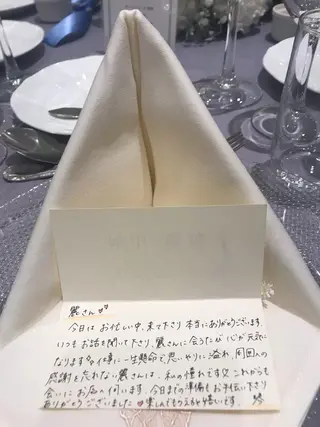 麗さんへ
今日は お忙しい中、来て下さり 本当にありがとうございます。
いつも お話を聞いて下さり、麗さんに会うたび 心が元気に
なります 仕事に一生懸命で、思いやりに溢れ、周囲への
感謝を忘れない麗さんは、私の憧れです これからも
会いに お店へ伺います。今日までの準備も お手伝い下さり
ありがとうございました 楽しんでもらえたら嬉しいです。